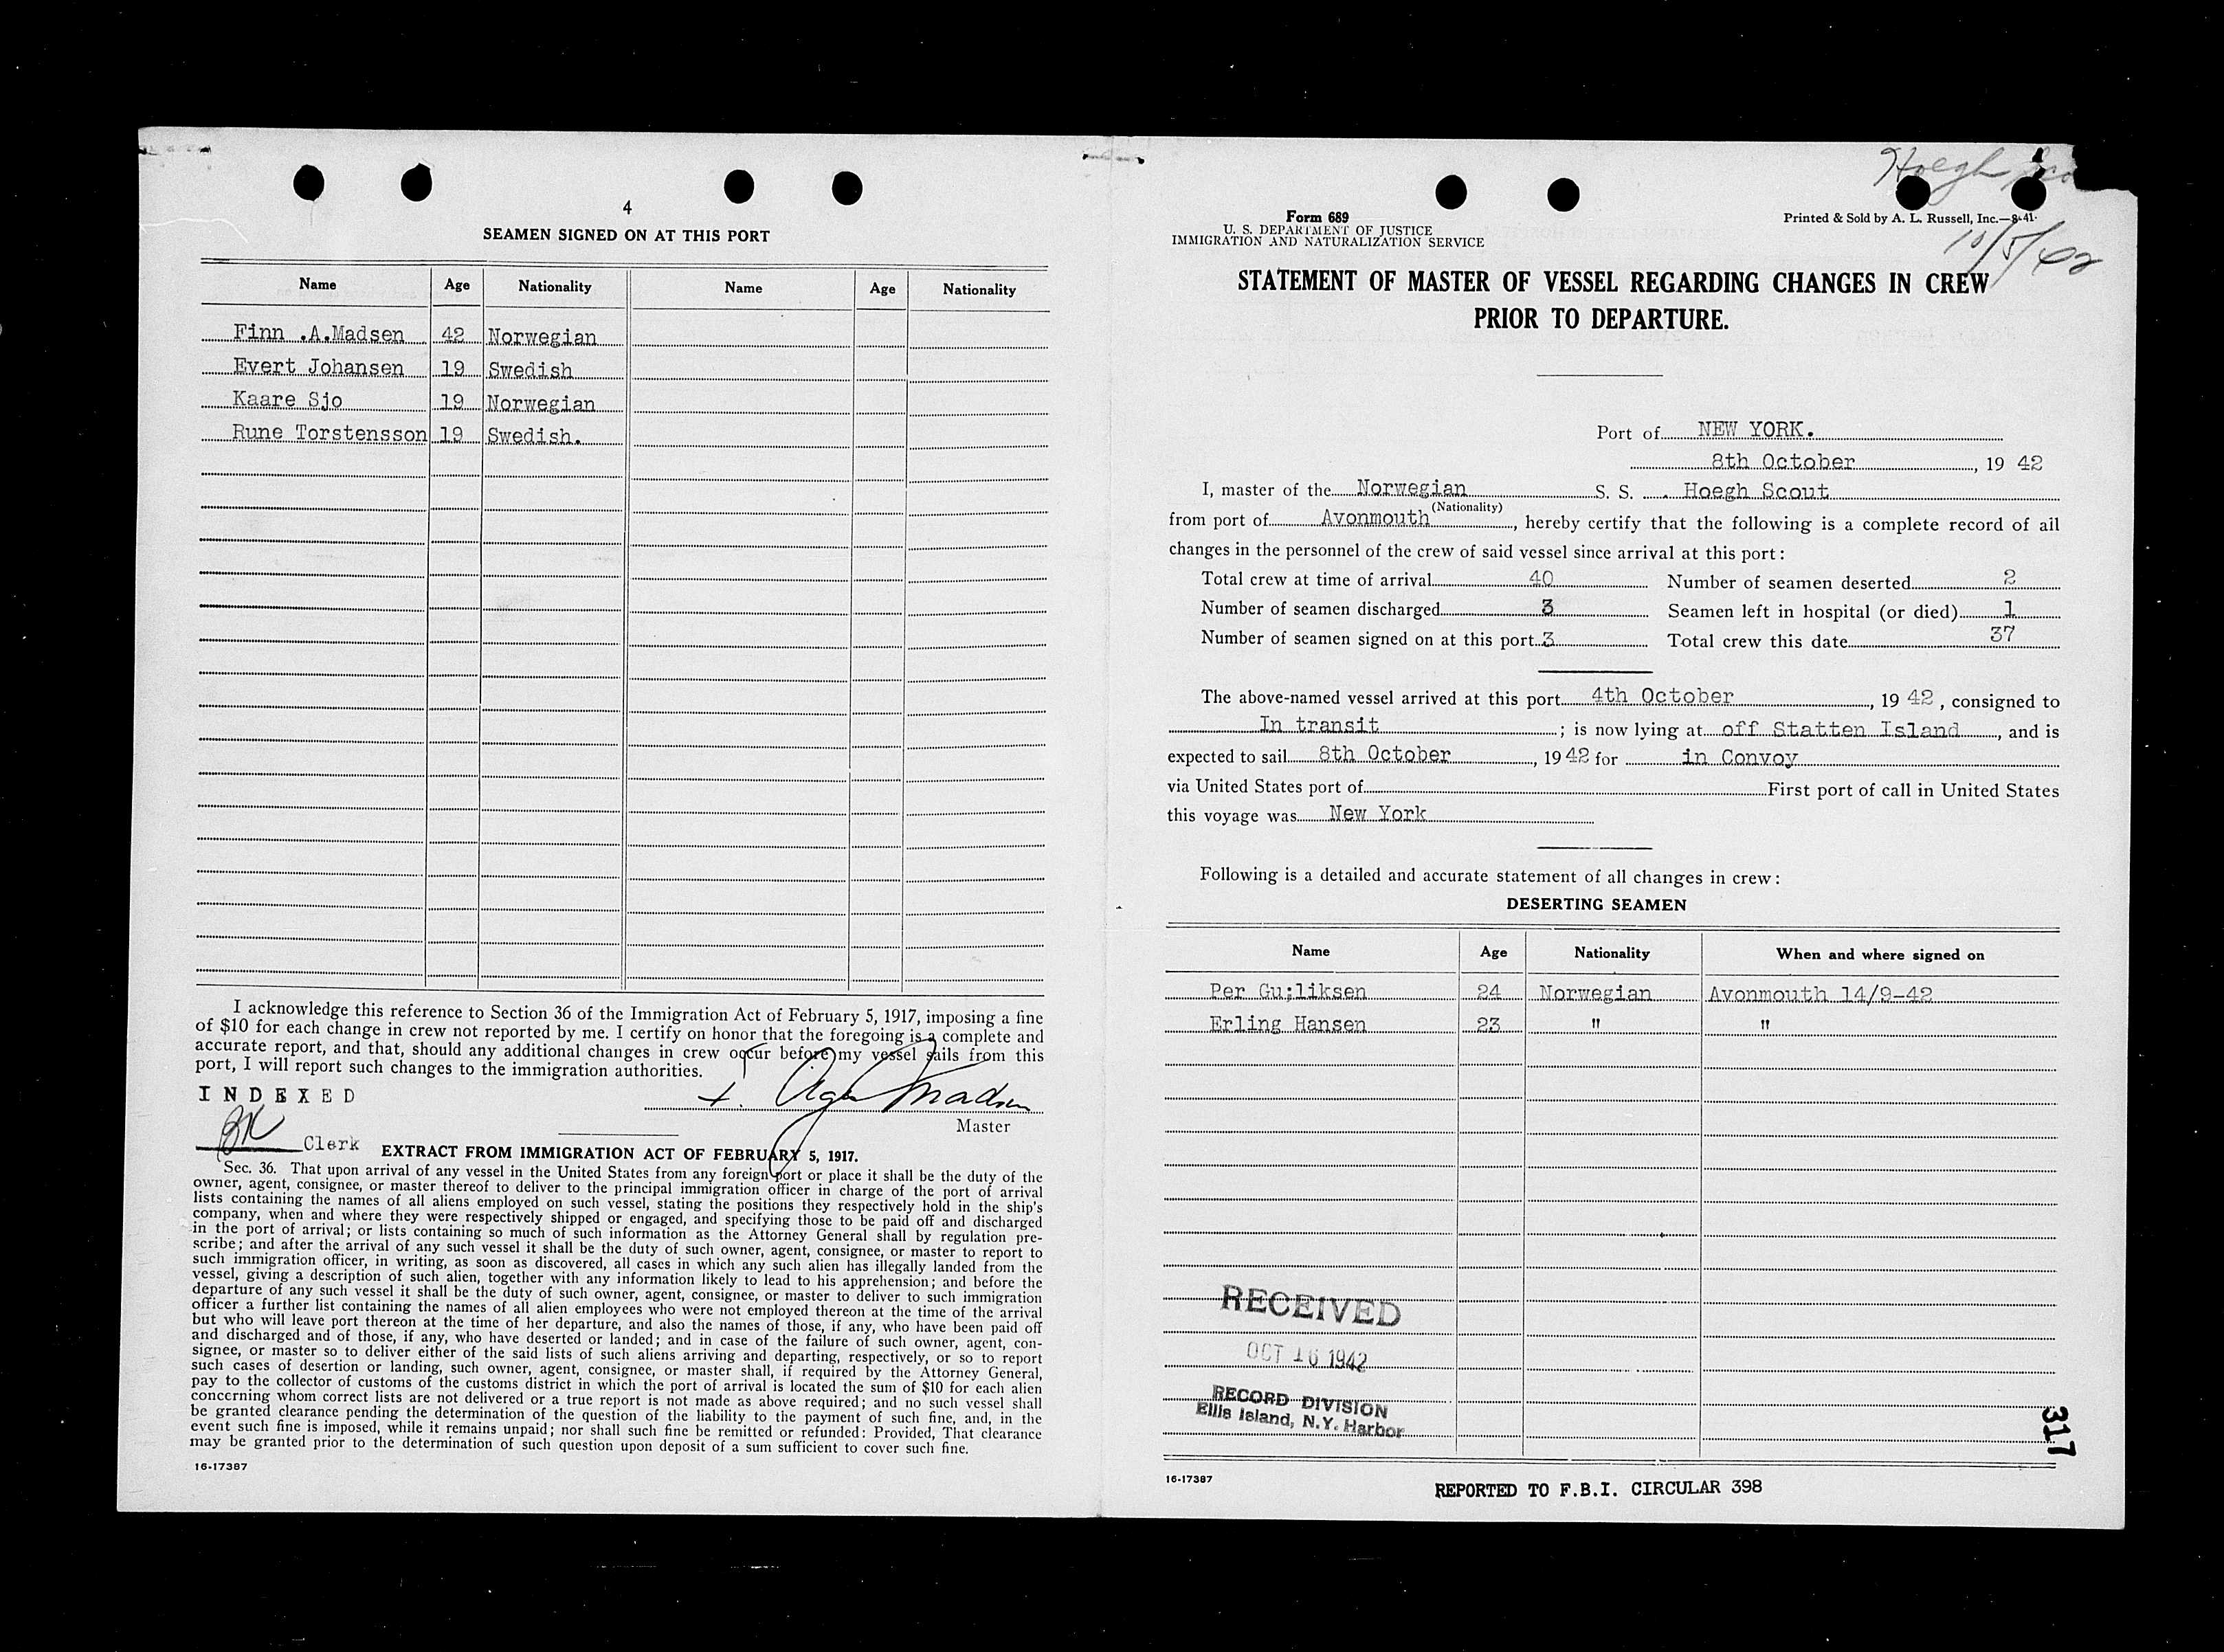 4
SEAMEN SIGNED ON AT THIS PORT
Name Age Nationality Name Age Nationality
Finn .A.Madsen 42 Norwegian
Evert Johansen 19 Swedish
Kaare Sjo 19 Norwegian
Rune Torstensson 19 Swedish.
I acknowledge this reference to Section 36 of the Immigration Act of February 5, 1917, imposing a fine
of $10 for each change in crew not reported by me. I certify on honor that the foregoing is a complete and
accurate report, and that, should any additional changes in crew occur before my vessel sails from this
port, I will report such changes to the immigration authorities.
INDEXED
Madsen
Master
Clerk
EXTRACT FROM IMMIGRATION ACT OF FEBRUARY 5, 1917.
Sec. 36. That upon arrival of any vessel in the United States from any foreign port or place it shall be the duty of the
owner, agent, consignee, or master thereof to deliver to the principal immigration officer in charge of the port of arrival
lists containing the names of all aliens employed on such vessel, stating the positions they respectively hold in the ship's
company, when and where they were respectively shipped or engaged, and specifying those to be paid off and discharged
in the port of arrival; or lists containing so much of such information as the Attorney General shall by regulation pre-
scribe; and after the arrival of any such vessel it shall be the duty of such owner, agent, consignee, or master to report to
such immigration officer, in writing, as soon as discovered, all cases in which any such alien has illegally landed from the
vessel, giving a description of such alien, together with any information likely to lead to his apprehension; and before the
departure of any such vessel it shall be the duty of such owner, agent, consignee, or master to deliver to such immigration
officer a further list containing the names of all alien employees who were not employed thereon at the time of the arrival
but who will leave port thereon at the time of her departure, and also the names of those, if any, who have been paid off
and discharged and of those, if any, who have deserted or landed; and in case of the failure of such owner, agent, con-
signee, or master so to deliver either of the said lists of such aliens arriving and departing, respectively, or so to report
such cases of desertion or landing, such owner, agent, consignee, or master shall, if required by the Attorney General,
pay to the collector of customs of the customs district in which the port of arrival is located the sum of $10 for each alien
concerning whom correct lists are not delivered or a true report is not made as above required; and no such vessel shall
be granted clearance pending the determination of the question of the liability to the payment of such fine, and, in the
event such fine is imposed, while it remains unpaid; nor shall such fine be remitted or refunded: Provided, That clearance
may be granted prior to the determination of such question upon deposit of a sum sufficient to cover such fine.
16-17387
Hoegh
Form 689
U. S. DEPARTMENT OF JUSTICE
IMMIGRATION AND NATURALIZATION SERVICE
Printed & Sold by A. L. Russell, Inc.—8-41.
10/5/42
STATEMENT OF MASTER OF VESSEL REGARDING CHANGES IN CREW
PRIOR TO DEPARTURE.
Port of NEW YORK.
8th October, 19 42
I, master of the Norwegian S. S. . Hoegh Scout
(Nationality)
from port of Avonmouth, hereby certify that the following is a complete record of all
changes in the personnel of the crew of said vessel since arrival at this port:
Total crew at time of arrival 40 Number of seamen deserted 2
Number of seamen discharged 3 Seamen left in hospital (or died) 1
Number of seamen signed on at this port 3 Total crew this date 37
The above-named vessel arrived at this port 4th October, 19 42, consigned to
In transit; is now lying at off Statten Island, and is
expected to sail 8th October, 19 42 for in Convoy
via United States port of First port of call in United States
this voyage was New York
Following is a detailed and accurate statement of all changes in crew:
DESERTING SEAMEN
Name Age Nationality When and where signed on
Per Gu;liksen 24 Norwegian Avonmouth 14/9-42
Erling Hansen 23 " "
RECEIVED
OCT 16 1942
RECORD DIVISION
Ellis Island, N.Y. Harbor
317
16-17387
REPORTED TO F.B.I. CIRCULAR 398